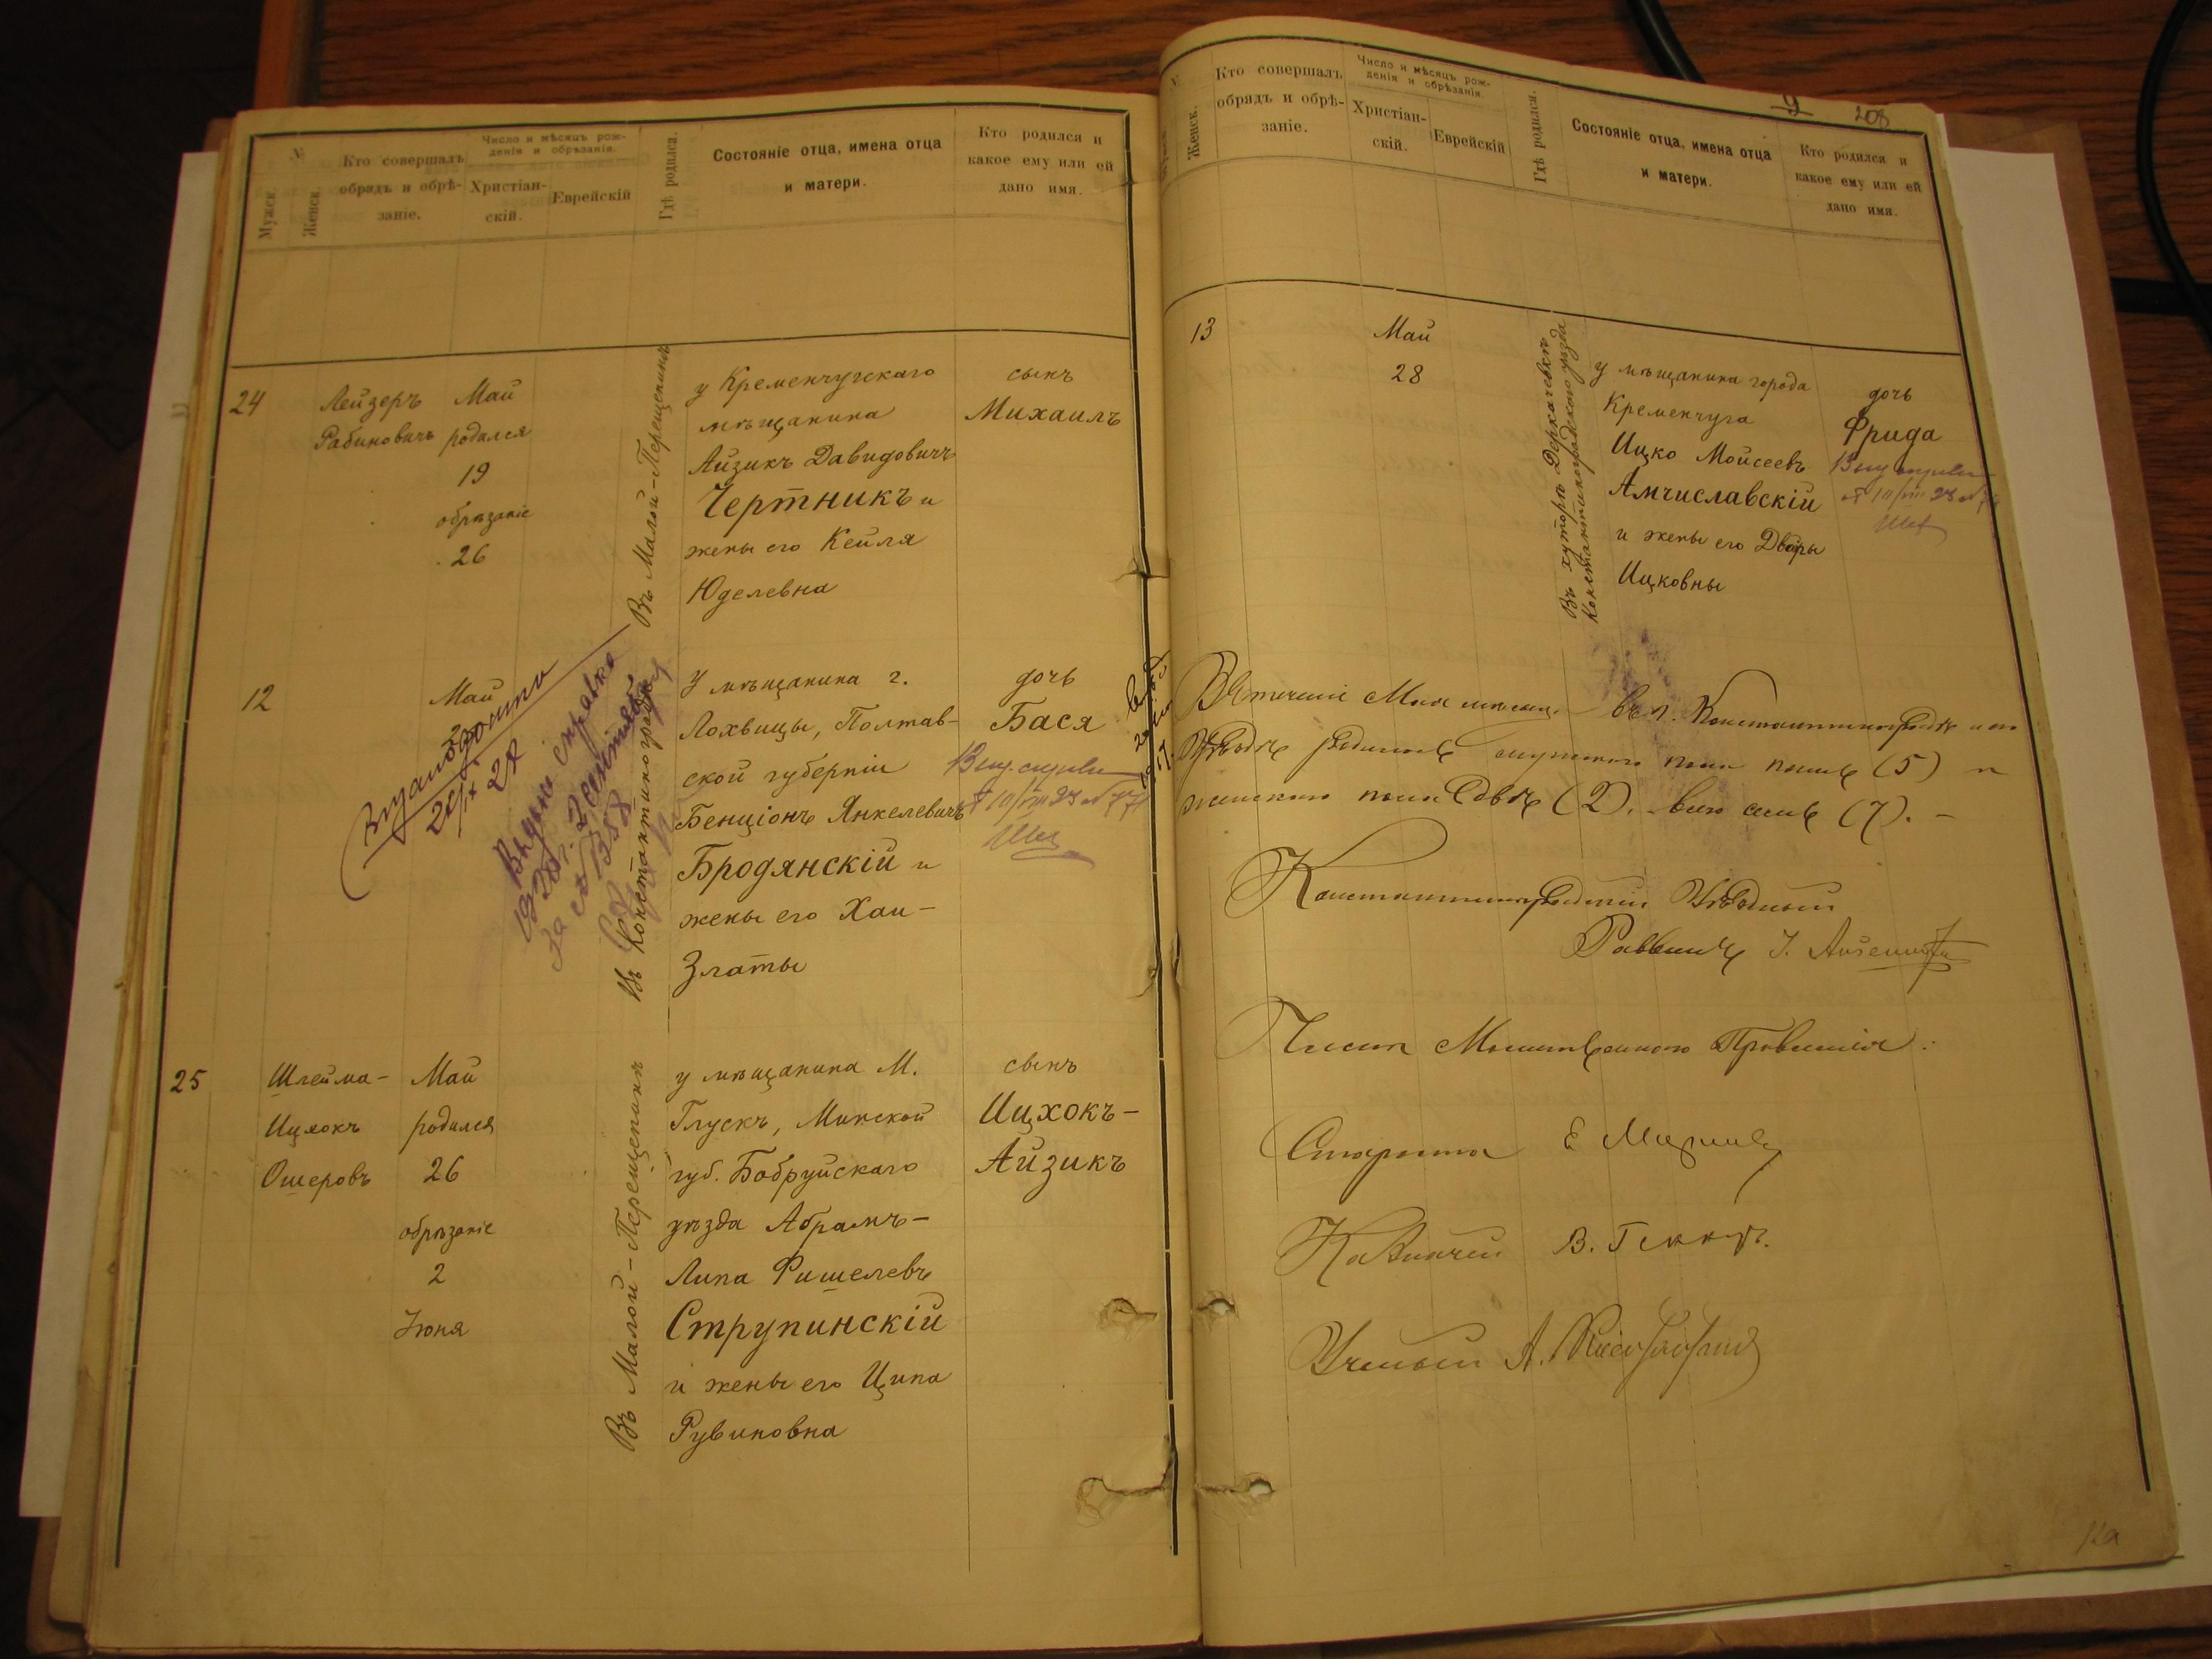 №
Мужск.
Женск.
Кто совершалъ
обрядъ и обрѣ-
заніе.
Число и мѣсяцъ рож-
денія и обрѣзанія.
Христіан-
скій.
Еврейскій
Гдѣ родился.
Состояніе отца, имена отца
и матери.
Кто родился и
какое ему или ей
дано имя.
24
Лейзеръ
Рабиновичъ
Май
родился
19
обрѣзаніе
26
Въ Малой-Перещепинѣ
у Кременчугскаго
мѣщанина
Айзикъ Давидовичъ
Чертникъ и
жены его Кейля
Юделевна
сынъ
Михаилъ
12
Май
Выдана справка
1920 г. 2 сентября
за № 1358
Въ Константиноградѣ
У мѣщанина г.
Лохвицы, Полтав-
ской губерніи
Бенціонъ Янкелевичъ
Бродянскій и
жены его Хаи-
Златы
дочь
Бася
25
Шлейма-
Ицхокъ
Ошеровъ
Май
родился
26
обрѣзаніе
2
Іюня
Въ Малой-Перещепинѣ
у мѣщанина М.
Глускъ, Минской
губ. Бобруйскаго
уѣзда Абрамъ-
Липа Фишелевъ
Струпинскій
и жены его Ципа
Рувиновна
сынъ
Ицхокъ-
Айзикъ
9 208
№
Женск.
Кто совершалъ
обрядъ и обрѣ-
заніе.
Число и мѣсяцъ рож-
денія и обрѣзанія.
Христіан-
скій.
Еврейскій
Гдѣ родился.
Состояніе отца, имена отца
и матери.
Кто родился и
какое ему или ей
дано имя.
13
Май
28
Въ хуторѣ Деркачевкѣ
Константиноградскаго уѣзда
у мѣщанина города
Кременчуга
Ицко Мойсеевъ
Амчиславскій
и жены его Дворы
Ицковны
дочь
Фрида
Въ теченіи Мая мѣсяца въ г. Константиноградѣ и его
уѣздѣ родилось мужского пола пять (5) и
женскаго пола двѣ (2). всего семь (7). –
Константиноградскій Уѣздный
Раввинъ
Члены Молитвеннаго Правленія:
Староста
Казначей В.
Ученый А.